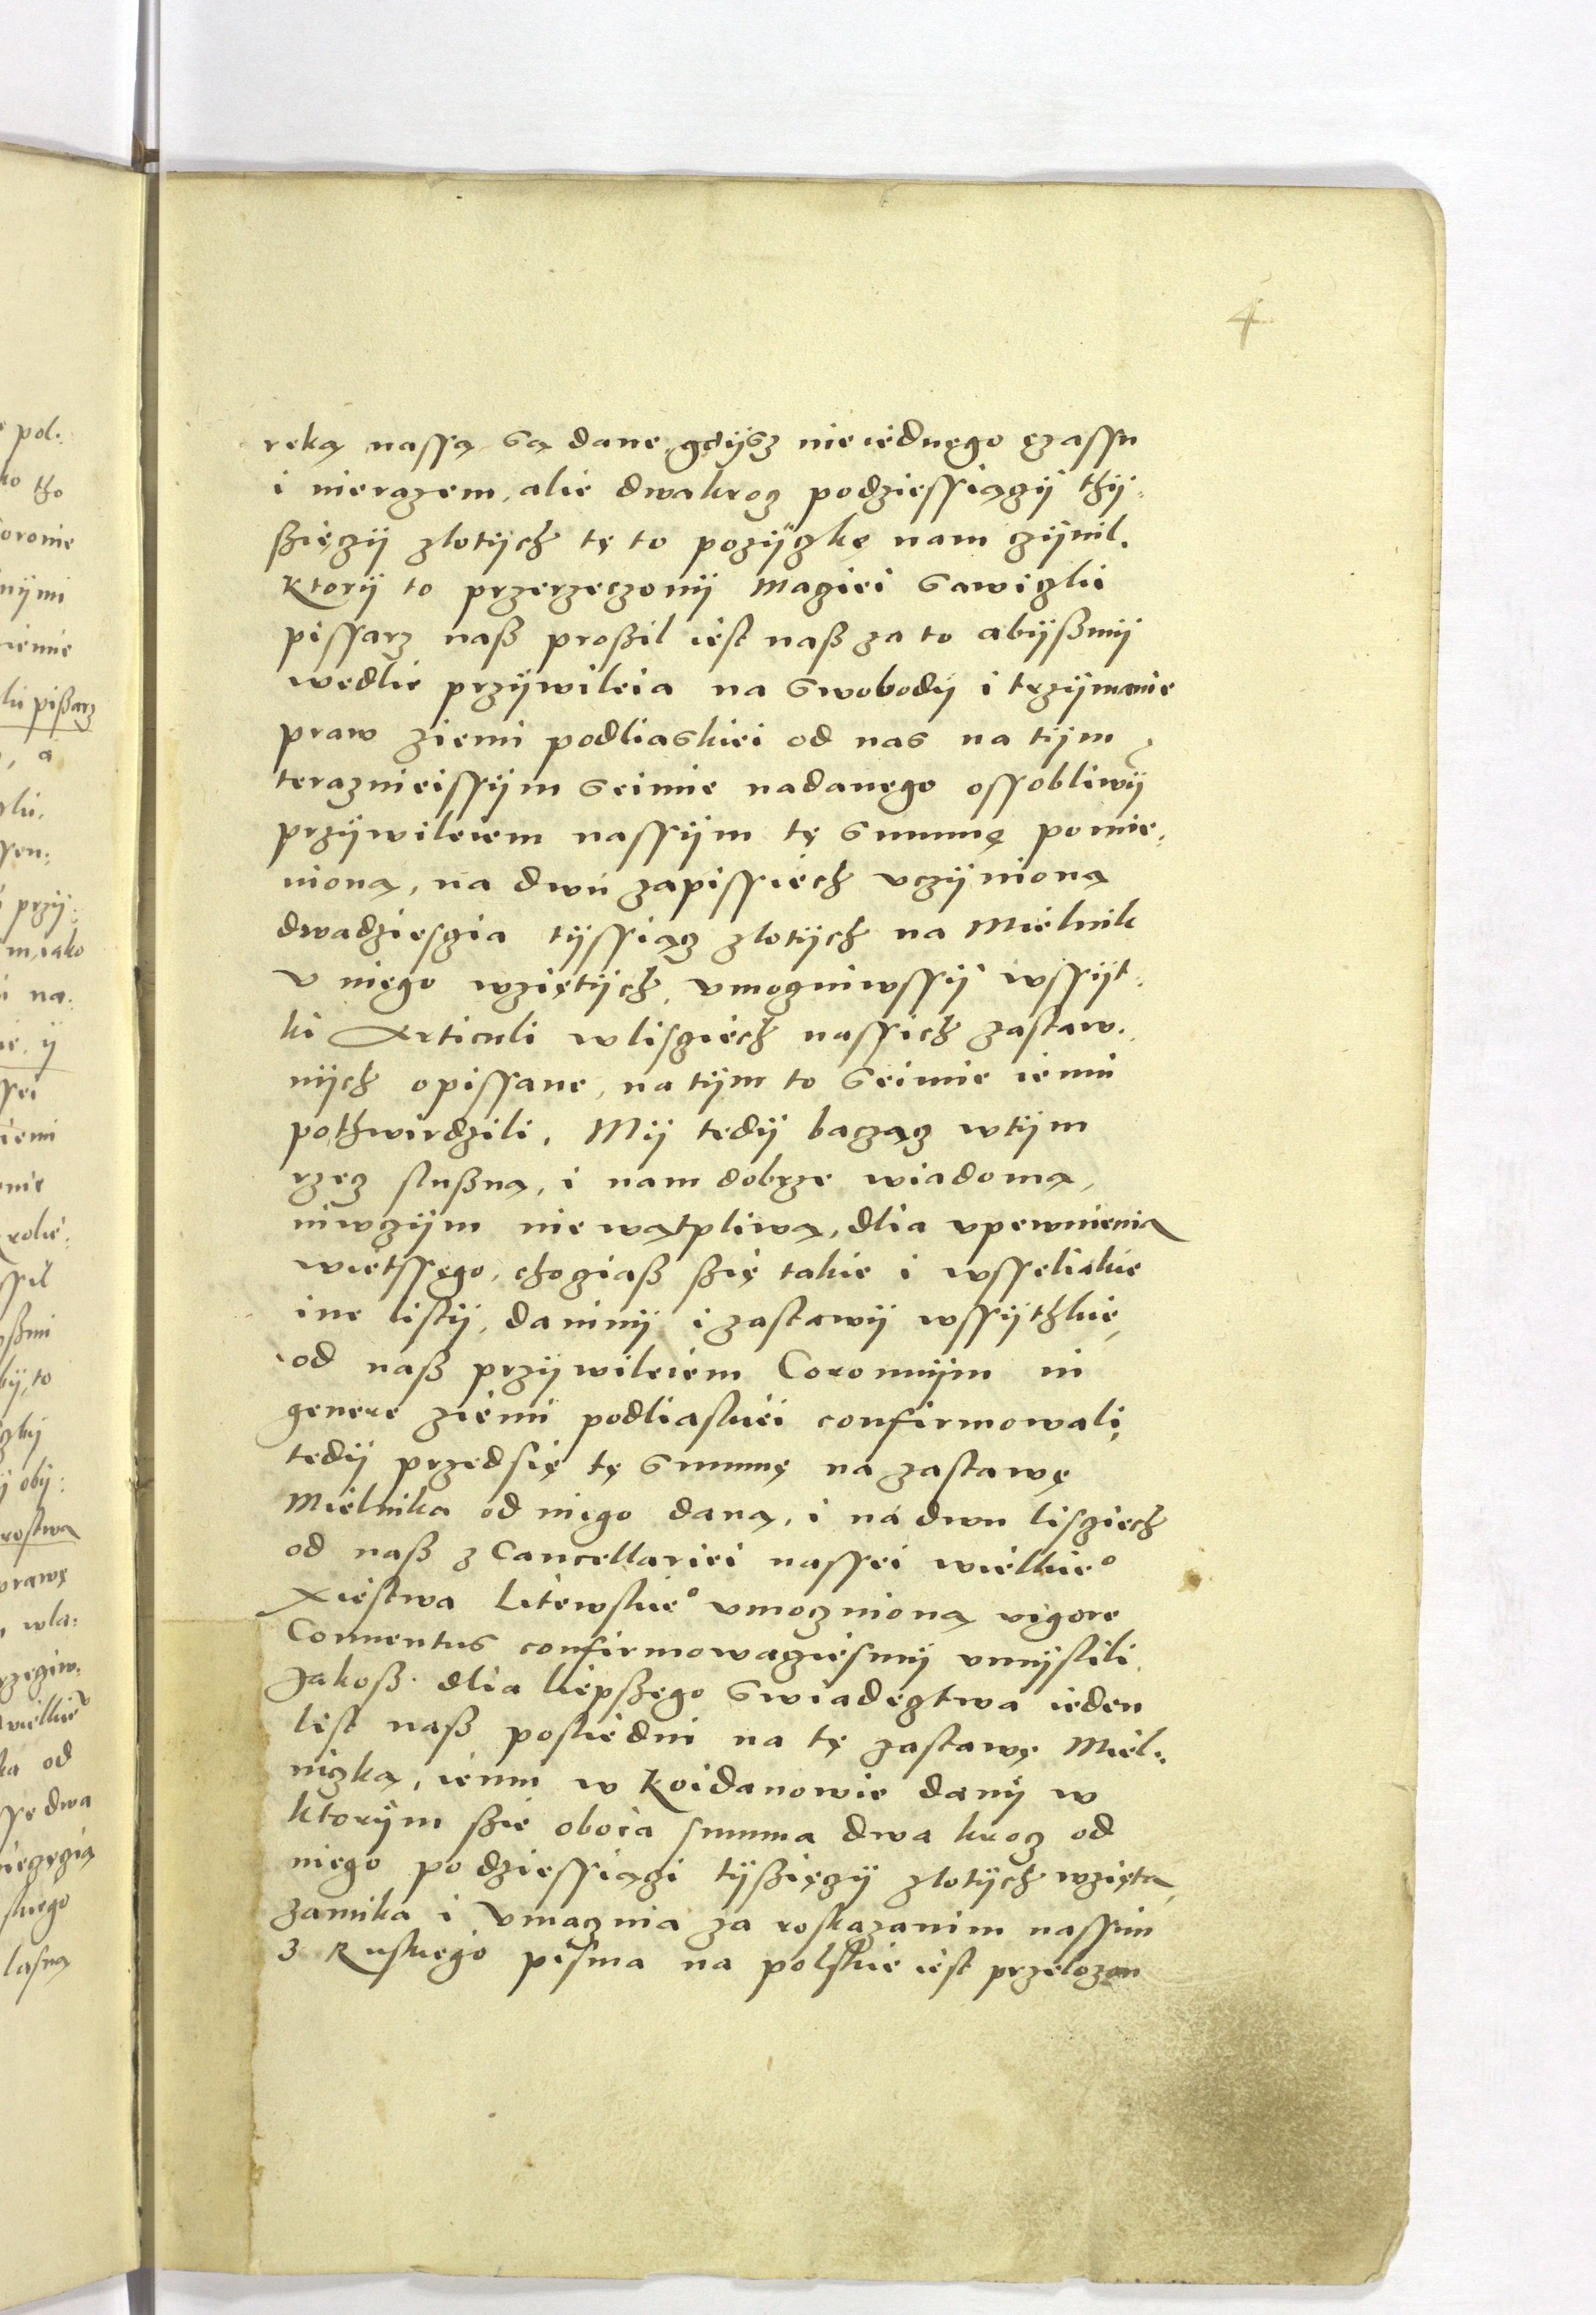 4
reką nassą są dane, gdÿsz nie iednego czassu
i nierazem, alie dwakroz podziessiączÿ thÿ:
szięczÿ zlotÿch tę to pozÿczkę nam czÿnil.
Ktorÿ to przerzeczonÿ Maciei Sawiczkii
pissarz nasz proszil iest nasz za to abÿszmÿ
wedlie przÿwileia na swobodÿ i trzÿmanie
praw ziemi podliaskiei od nas na tÿm
teraznieissÿm seimie nadanego ossobliwÿ
przÿwileiem nassÿm tę summę pomie:
nioną, na dwu zapissiech vczÿnioną
dwadziescia tÿssiącz zlotÿch na Mielnik
v niego wziętÿch, vmocniwssÿ wssÿt:
ki Articuli w lisciech nassich zastaw:
nÿch opissane, na tÿm to seimie iemu
pothwirdzili. Mÿ tedÿ bacząc w tÿm
rzecz sluszną, i nam dobrze wiadomą,
niwczÿm nie wątpliwą, dlia vpewnienia
wietssego, chociasz szię takie i wsseliakie
ine listÿ, daninÿ i zastawÿ wssÿthkie,
od nasz przÿwileiem Coronnÿm in
genere ziemi podliaskiei confirmowali,
tedÿ przedsię tę summę na zastawę
Mielnika od niego daną, i na dwu lisciech
od nasz z Cancellariei nassei wielkie°
Xiestwa Litewskie° vmocznioną vigore
Conuentus confirmowaciesmÿ vmÿslili.
Jakosz dlia liepszego swiadectwa ieden
list nasz posliedni na tę zastawę Miel:
niczką, iemu w Koidanowie danÿ w
ktorÿm szie oboia summa dwa kroz od
niego podziessiączi tÿszięczÿ zlotÿch wzięta,
zamika i vmacznia za roskazanim nassim
z Ruskiego pisma na polskie iest przelozon